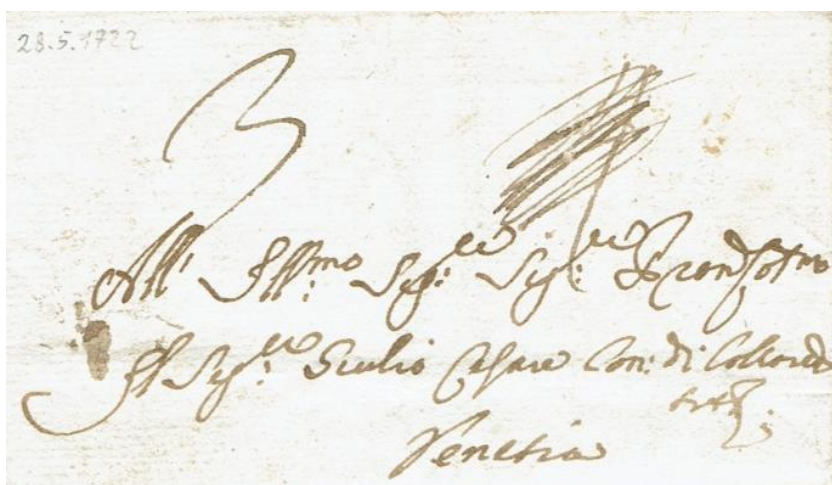 28.5.1722
3
All' Ill:mo Sig:re Sig:re
Il Sig:re Giulio Cesare Con: di Colloredo
Venetia